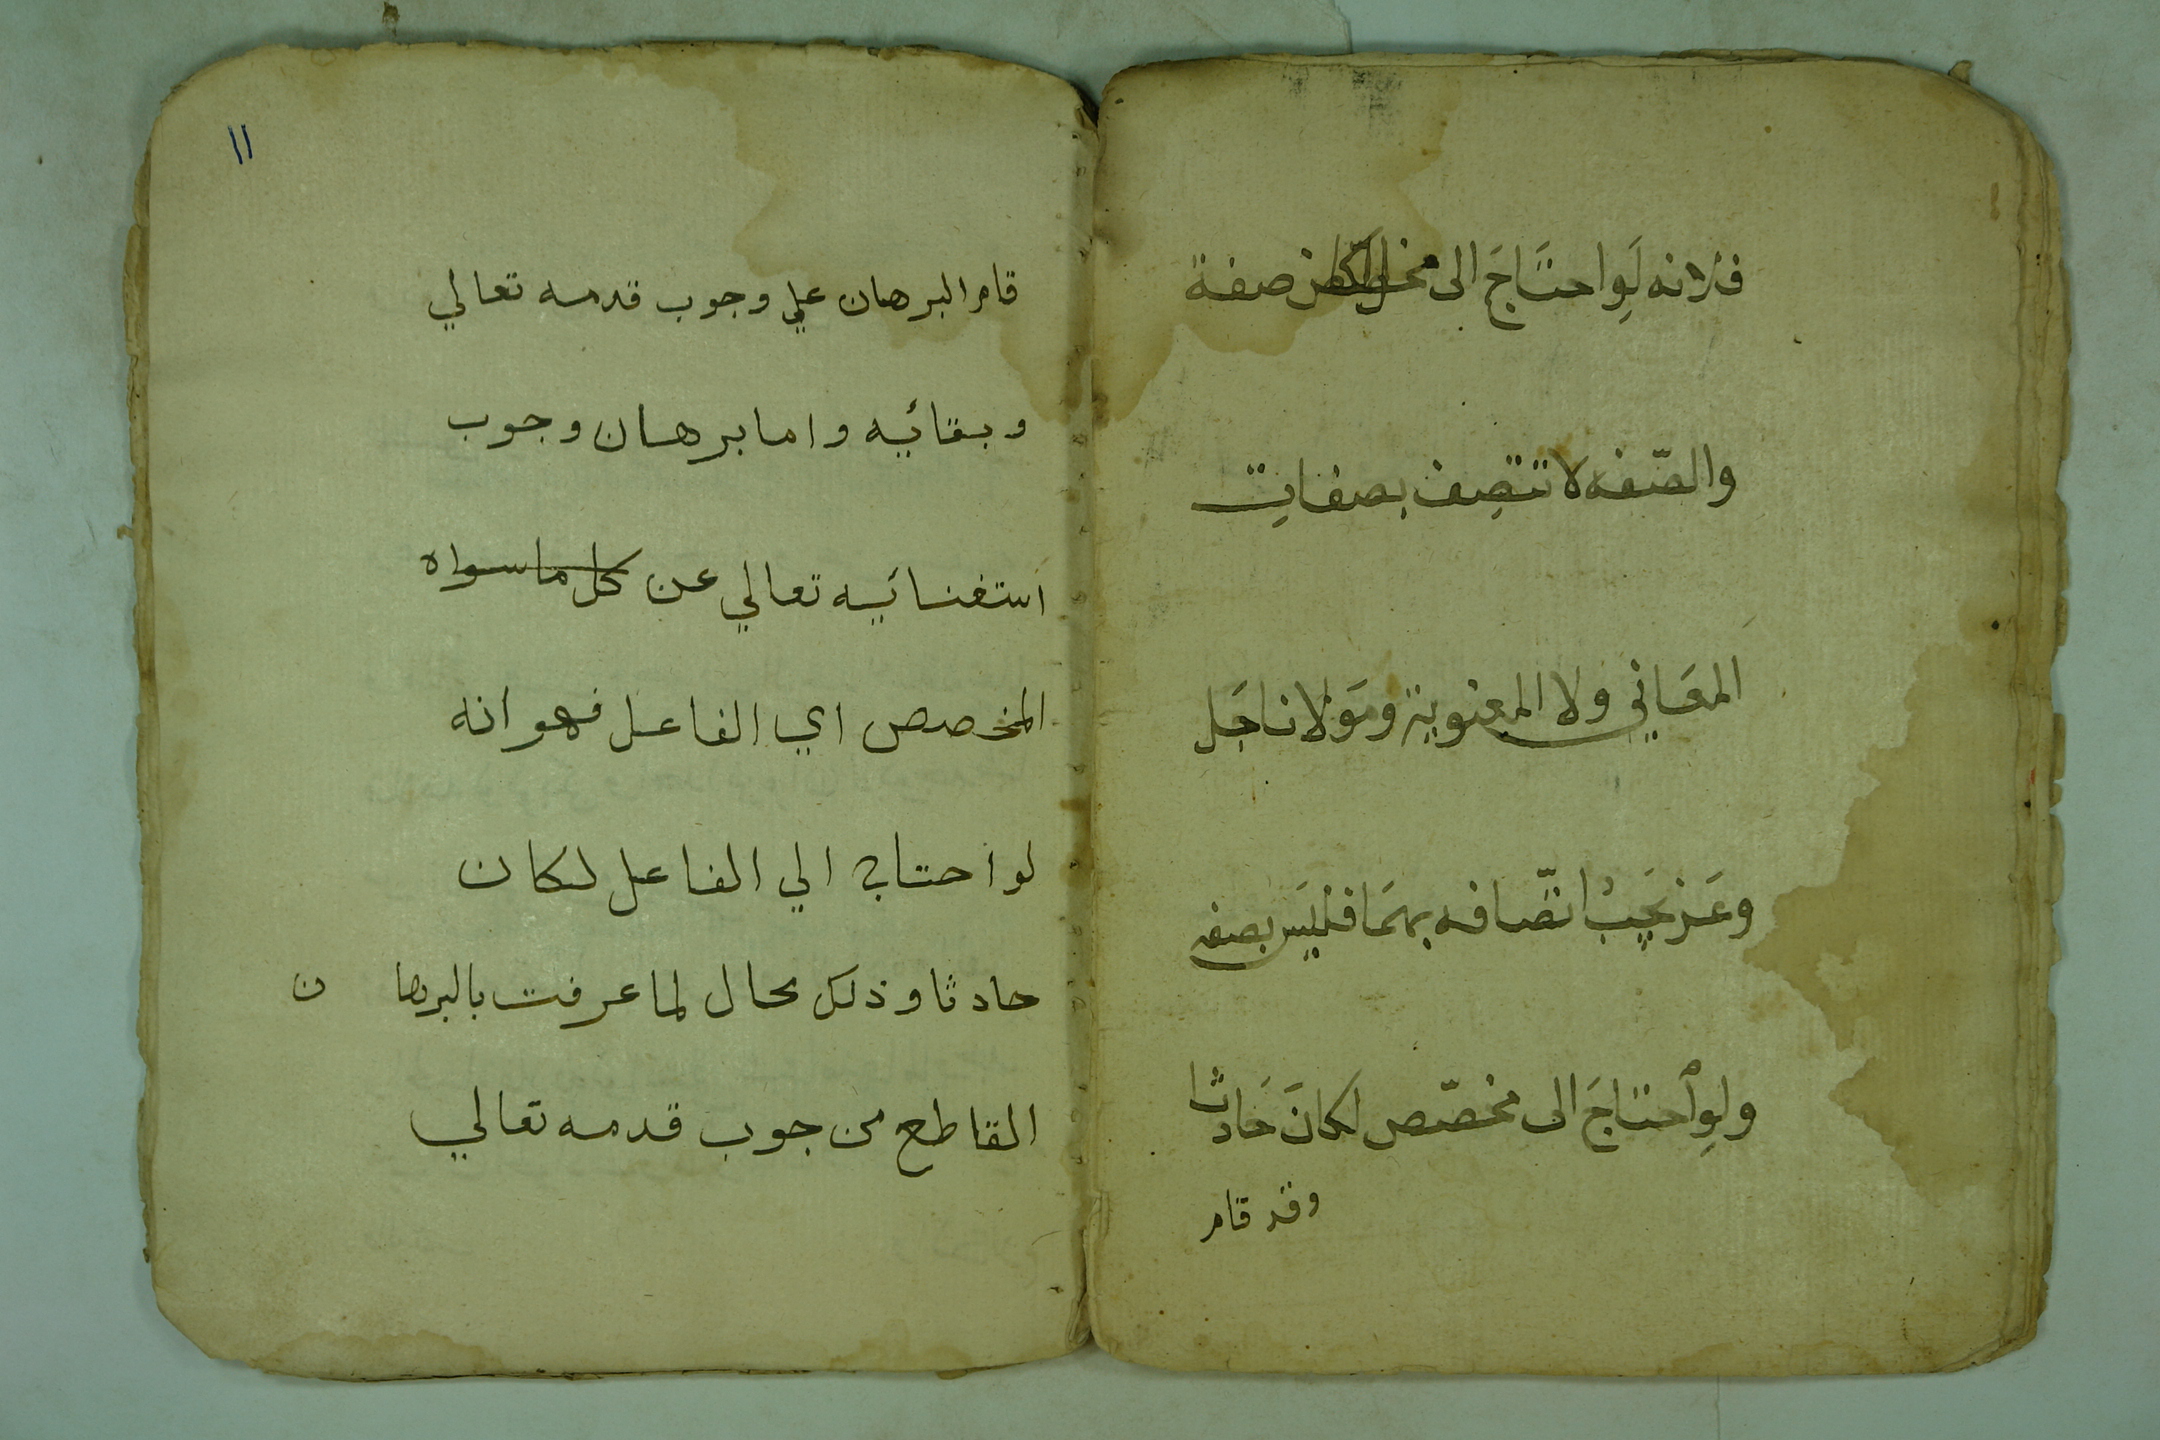 فلانه لَوِ احتَاجَ الى محل لكان صفة
والصّفه لا تتصِف بصفاتِ
المعَاني ولا المعنوية ومَوْلانا جَل
وعَز يَجِبُ اتّصافه بهمَا فليَس بصفه
ولوِ احتاجَ الى مخصّص لكانَ حَادثا
وقد قام
١١
قام البرهان علي وجوب قدمه تعالي
وبقائيه واما برهان وجوب
استغنائيه تعالي عن كل ما سواه
المخصص اي الفاعل فهو انه
لو احتاج الي الفاعل لكان
حادثا وذلك محال لما عرفت بالبرها ن
القاطع من جوب قدمه تعالي